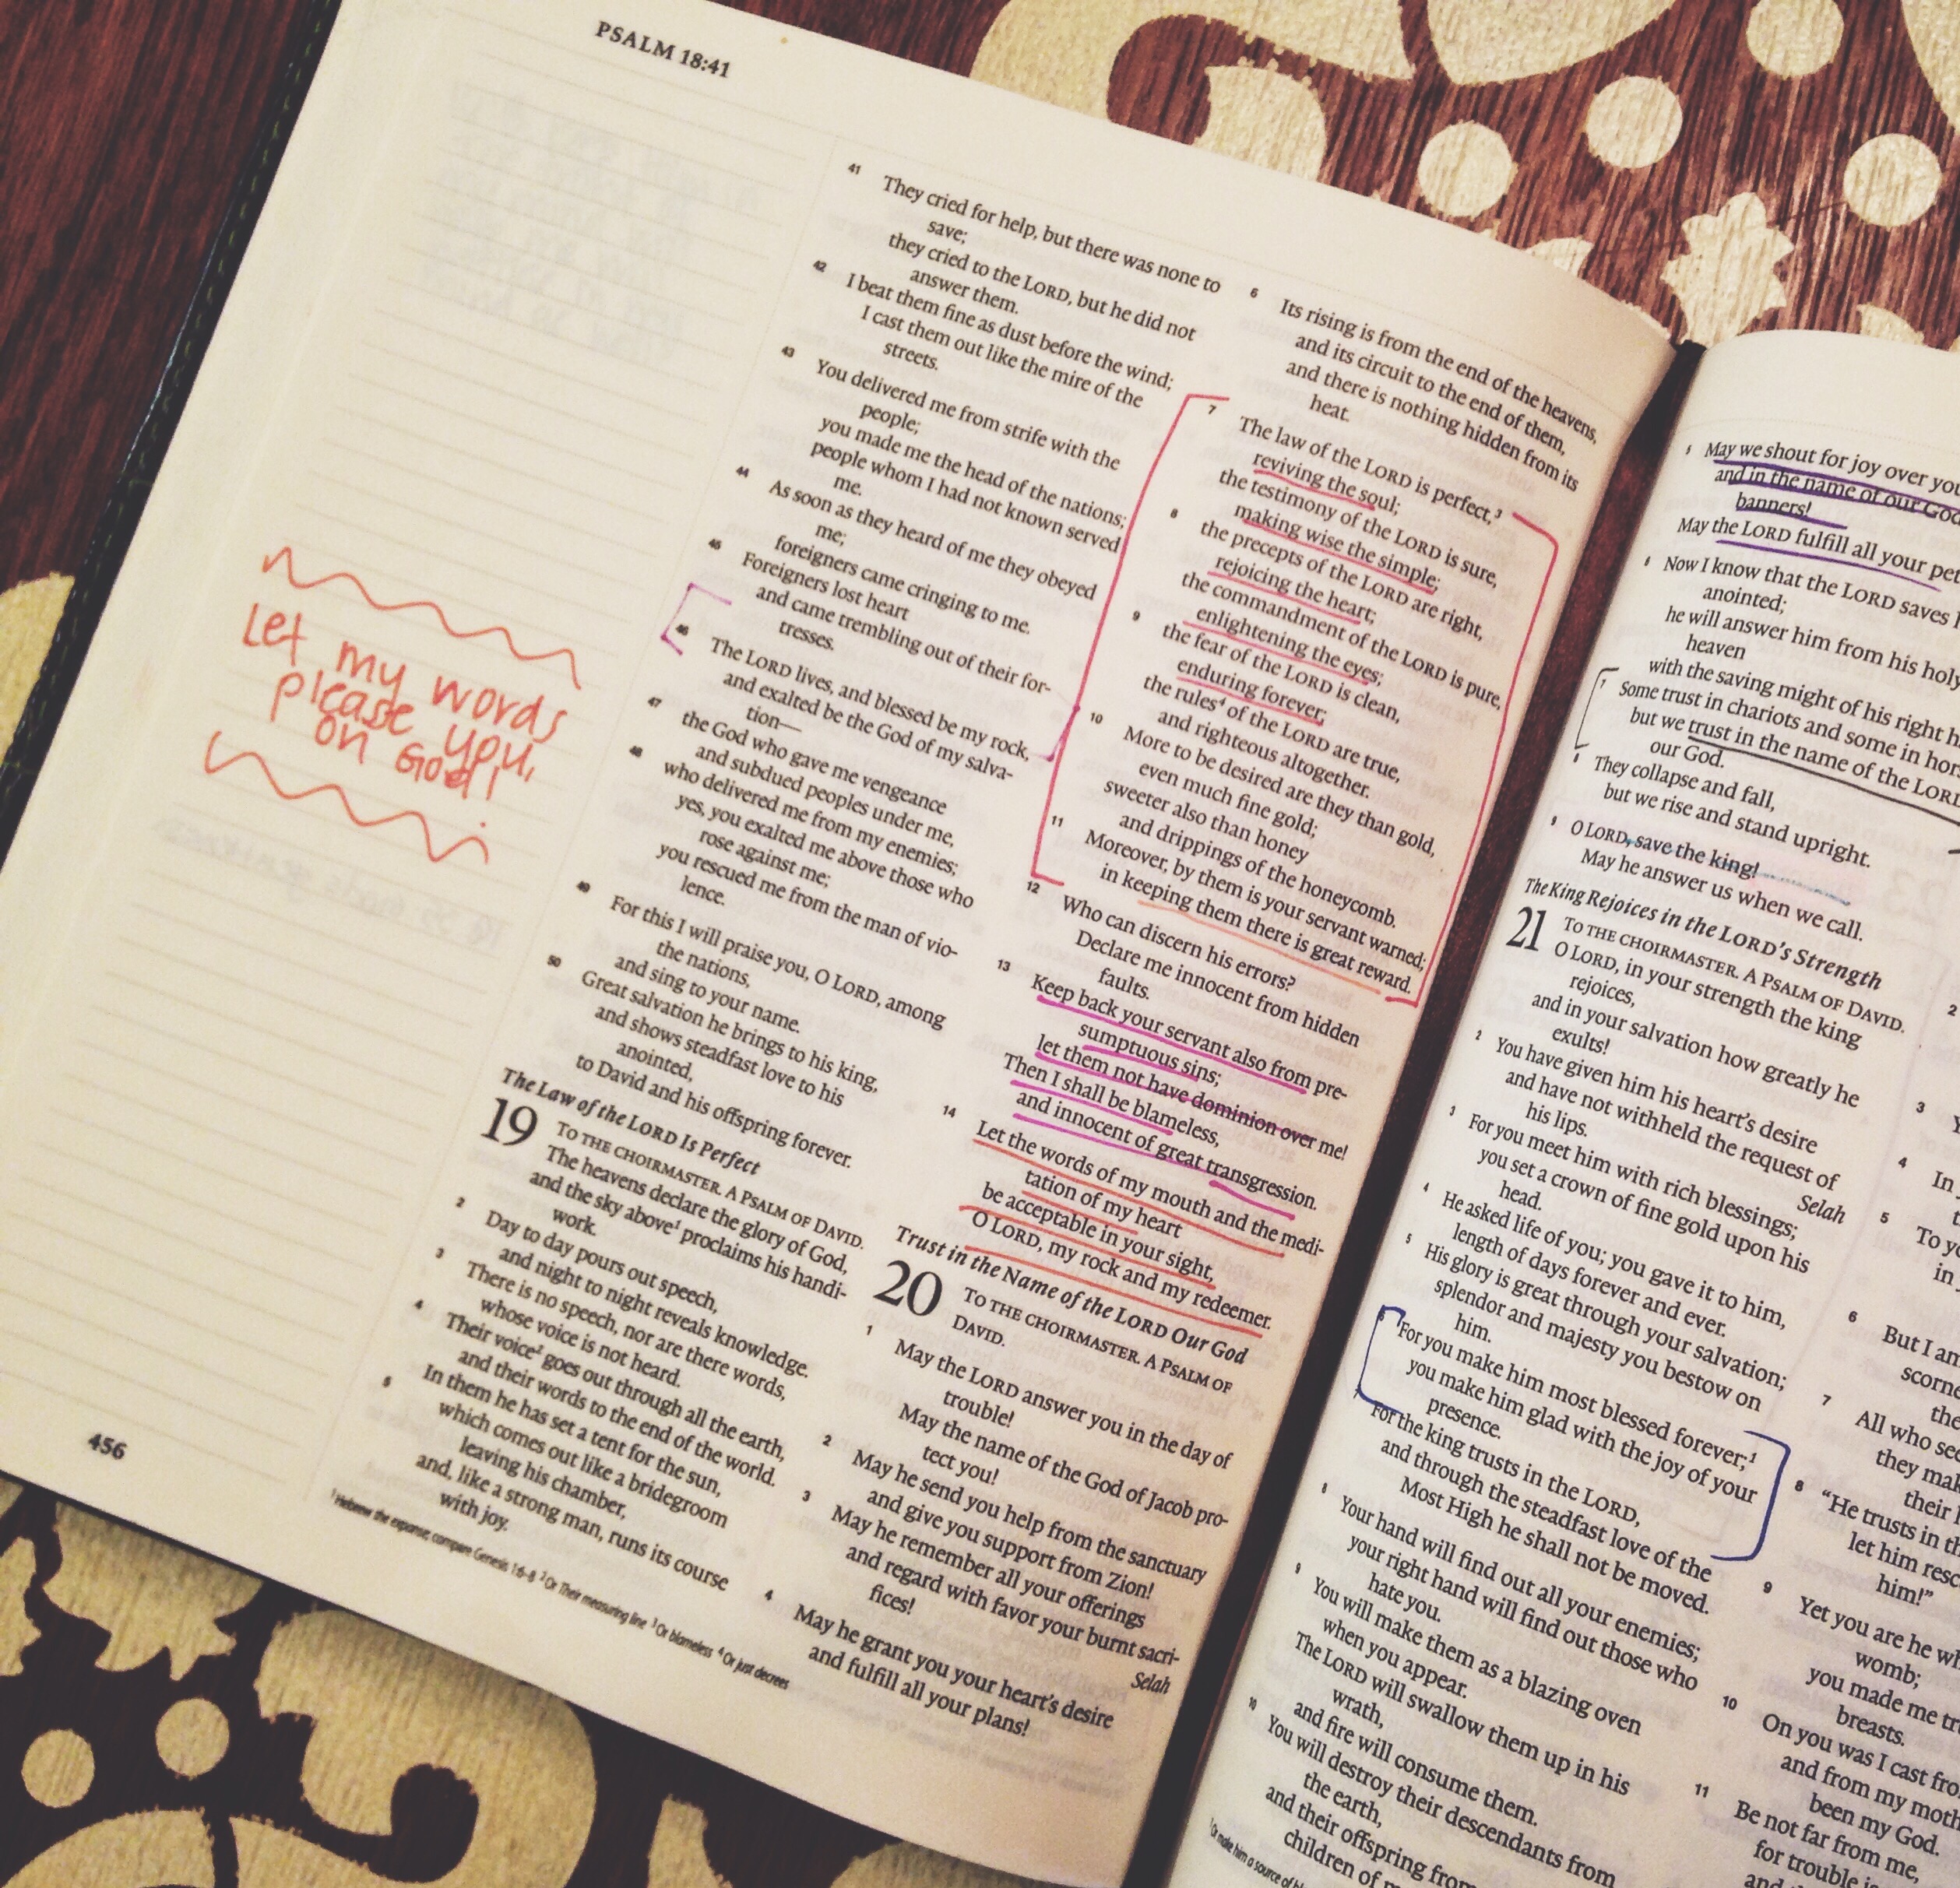 PSALM 18:41
Let my words
please you,
on God!
41 They cried for help, but there was none to
save;
they cried to the LORD, but he did not
answer them.
42 I beat them fine as dust before the wind;
I cast them out like the mire of the
streets.
43 You delivered me from strife with the
people;
you made me the head of the nations;
people whom I had not known served
me.
44 As soon as they heard of me they obeyed
me;
foreigners came cringing to me.
45 Foreigners lost heart
and came trembling out of their for-
tresses.
46 The LORD lives, and blessed be my rock,
and exalted be the God of my salva-
tion—
47 the God who gave me vengeance
and subdued peoples under me,
48 who delivered me from my enemies;
yes, you exalted me above those who
rose against me;
you rescued me from the man of vio-
lence.
49 For this I will praise you, O LORD, among
the nations,
and sing to your name.
50 Great salvation he brings to his king,
and shows steadfast love to his
anointed,
to David and his offspring forever.
The Law of the LORD Is Perfect
19 TO THE CHOIRMASTER. A PSALM OF DAVID.
The heavens declare the glory of God,
and the sky above¹ proclaims his handi-
work.
2 Day to day pours out speech,
and night to night reveals knowledge.
3 There is no speech, nor are there words,
whose voice is not heard.
4 Their voice² goes out through all the earth,
and their words to the end of the world.
In them he has set a tent for the sun,
5 which comes out like a bridegroom
leaving his chamber,
and, like a strong man, runs its course
with joy.
6 Its rising is from the end of the heavens,
and its circuit to the end of them,
and there is nothing hidden from its
heat.
7 The law of the LORD is perfect,³
reviving the soul;
the testimony of the LORD is sure,
making wise the simple;
8 the precepts of the LORD are right,
rejoicing the heart;
the commandment of the LORD is pure,
enlightening the eyes;
9 the fear of the LORD is clean,
enduring forever;
the rules⁴ of the LORD are true,
and righteous altogether.
10 More to be desired are they than gold,
even much fine gold;
sweeter also than honey
and drippings of the honeycomb.
11 Moreover, by them is your servant warned;
in keeping them there is great reward.
12 Who can discern his errors?
Declare me innocent from hidden
faults.
13 Keep back your servant also from pre-
sumptuous sins;
let them not have dominion over me!
Then I shall be blameless,
and innocent of great transgression.
14 Let the words of my mouth and the medi-
tation of my heart
be acceptable in your sight,
O LORD, my rock and my redeemer.
Trust in the Name of the LORD Our God
20 TO THE CHOIRMASTER. A PSALM OF
DAVID.
1 May the LORD answer you in the day of
trouble!
May the name of the God of Jacob pro-
tect you!
2 May he send you help from the sanctuary
and give you support from Zion!
3 May he remember all your offerings
and regard with favor your burnt sacri-
fices! Selah
4 May he grant you your heart's desire
and fulfill all your plans!
¹ Hebrew the expanse; compare Genesis 1:6–8 ² Or Their measuring line ³ Or blameless ⁴ Or just decrees
456
5 May we shout for joy over you
and in the name of our God
banners!
May the LORD fulfill all your pet
6 Now I know that the LORD saves h
anointed;
he will answer him from his holy
heaven
with the saving might of his right h
7 Some trust in chariots and some in hors
but we trust in the name of the LORD
our God.
8 They collapse and fall,
but we rise and stand upright.
9 O LORD, save the king!
May he answer us when we call.
The King Rejoices in the LORD's Strength
21 TO THE CHOIRMASTER. A PSALM OF DAVID.
O LORD, in your strength the king
rejoices,
and in your salvation how greatly he
exults!
2 You have given him his heart's desire
and have not withheld the request of
his lips. Selah
3 For you meet him with rich blessings;
you set a crown of fine gold upon his
head.
4 He asked life of you; you gave it to him,
length of days forever and ever.
5 His glory is great through your salvation;
splendor and majesty you bestow on
him.
6 For you make him most blessed forever;¹
you make him glad with the joy of your
presence.
7 For the king trusts in the LORD,
and through the steadfast love of the
Most High he shall not be moved.
8 Your hand will find out all your enemies;
your right hand will find out those who
hate you.
9 You will make them as a blazing oven
when you appear.
The LORD will swallow them up in his
wrath,
and fire will consume them.
10 You will destroy their descendants from
the earth,
and their offspring from
children of
¹ Or make him a source of
2
3
4 In
5 To yo
in
6 But I am
scorne
the
7 All who see
they mak
their
8 "He trusts in th
let him resc
him!"
9 Yet you are he wh
womb;
you made me tr
breasts.
10 On you was I cast fro
and from my moth
been my God.
11 Be not far from me,
for trouble is
and